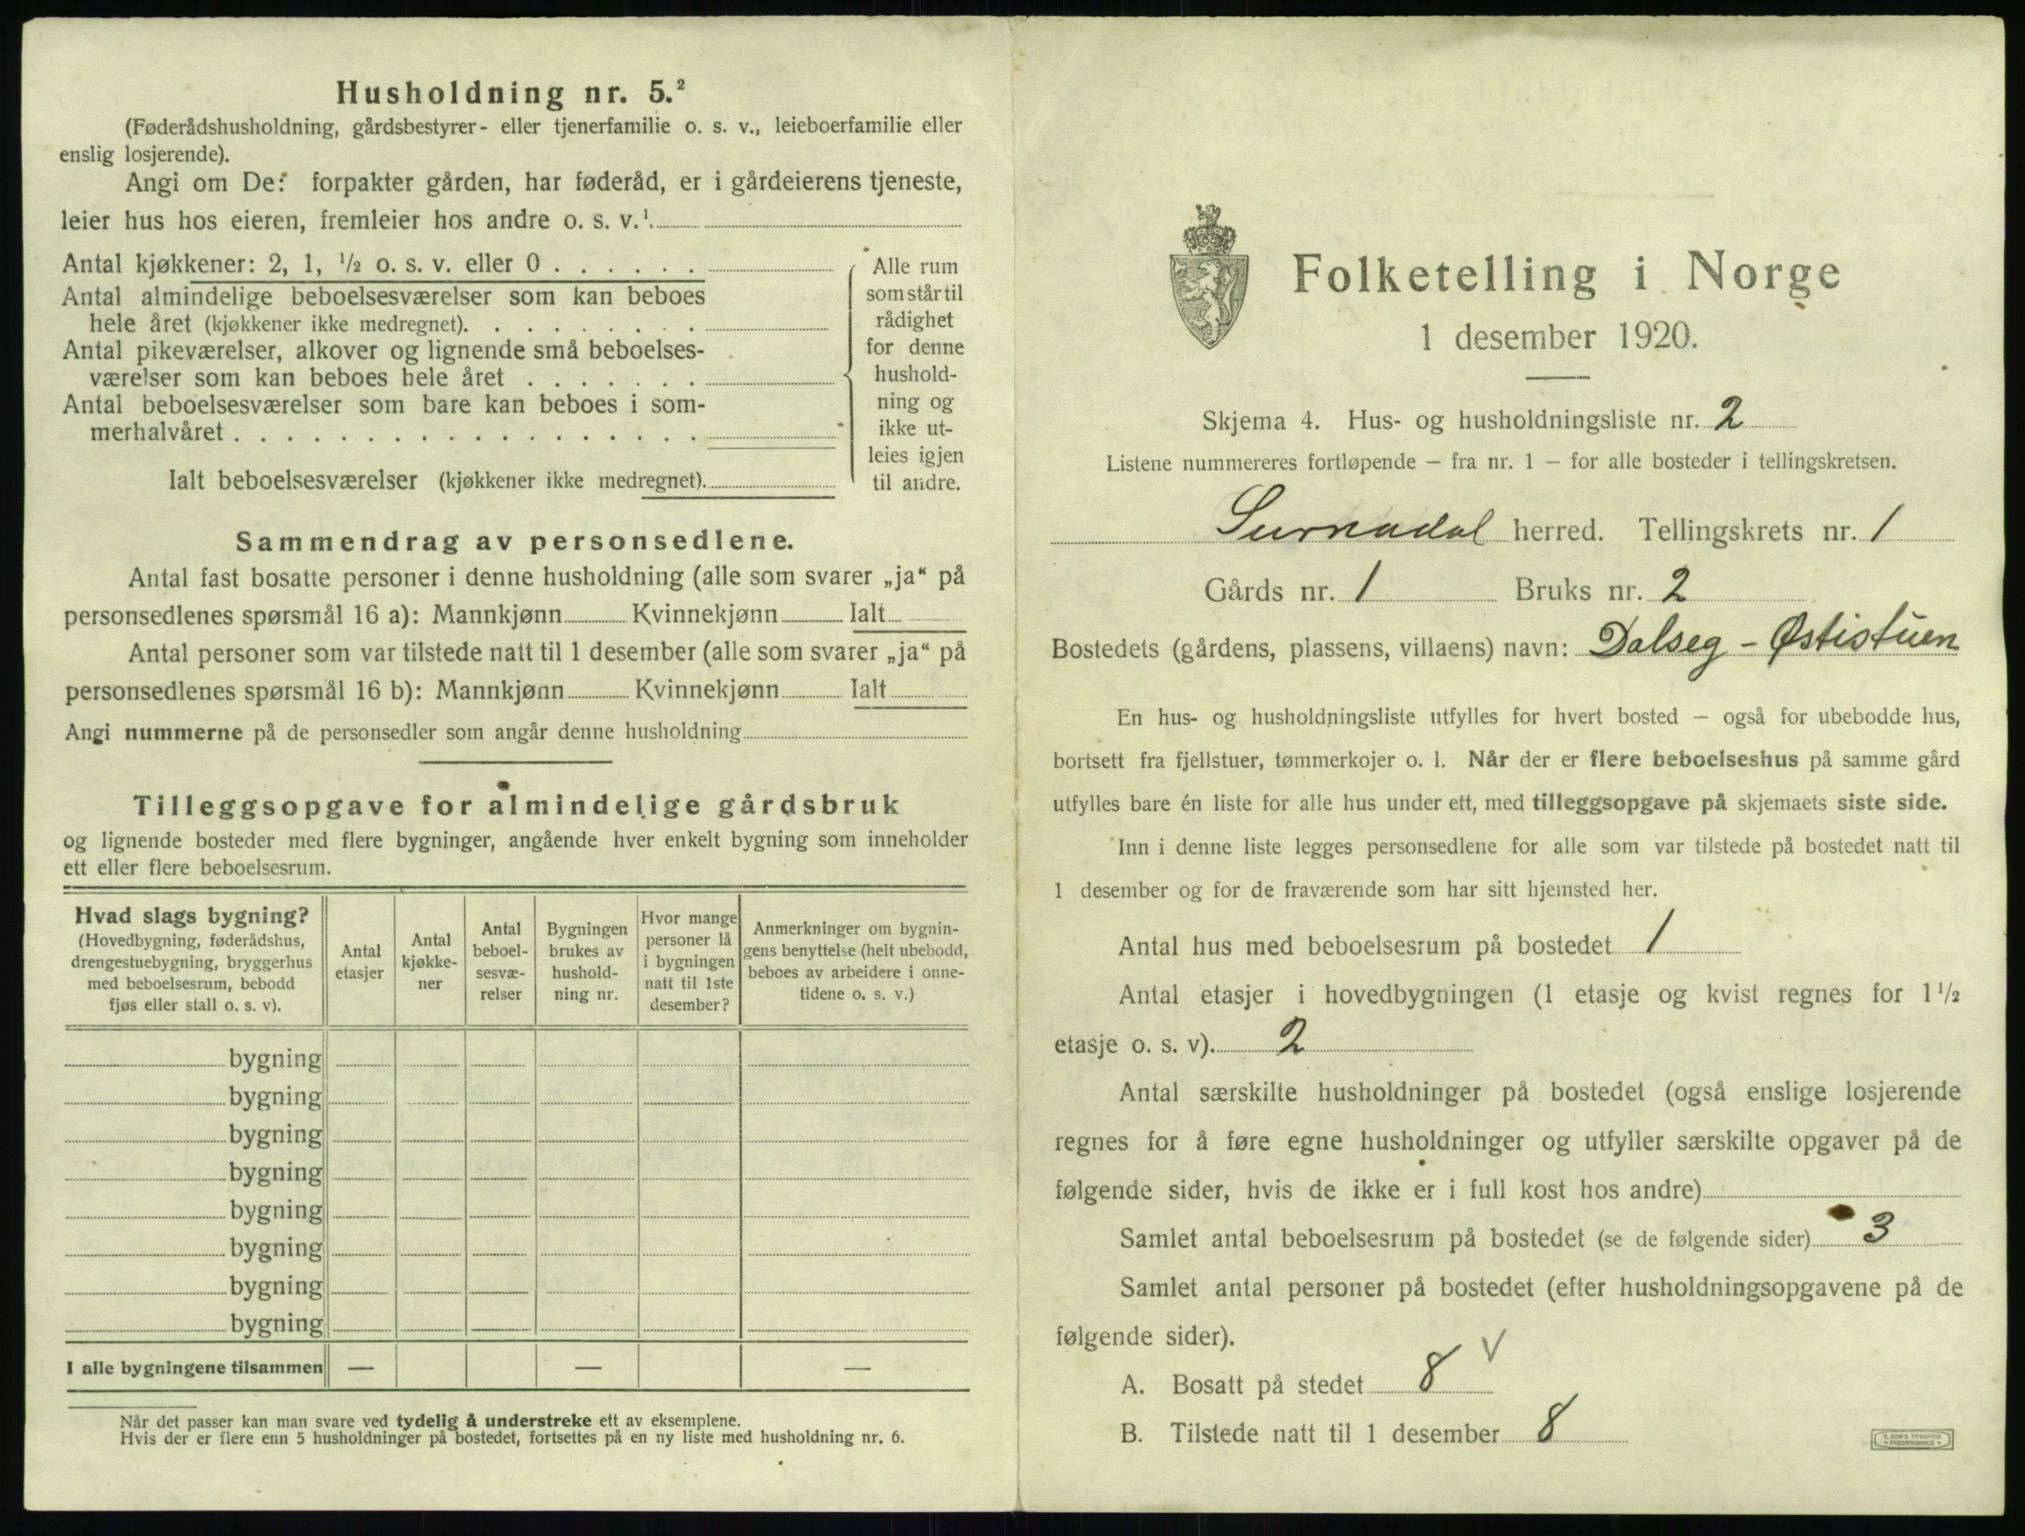 Husholdning nr. 5.²
(Føderådshusholdning, gårdsbestyrer- eller tjenerfamilie o. s. v., leieboerfamilie eller
enslig losjerende).
Angi om De: forpakter gården, har føderåd, er i gårdeierens tjeneste,
leier hus hos eieren, fremleier hos andre o. s. v.¹
Antal kjøkkener: 2, 1, ½ o. s. v. eller 0 . . . . . .
Antal almindelige beboelsesværelser som kan beboes
hele året (kjøkkener ikke medregnet). . . . . . . . .
Antal pikeværelser, alkover og lignende små beboelses-
værelser som kan beboes hele året . . . . . . .
Antal beboelsesværelser som bare kan beboes i som-
merhalvåret . . . . . . . . . . . . . . . . . .
Ialt beboelsesværelser (kjøkkener ikke medregnet).
Alle rum
som står til
rådighet
for denne
hushold-
ning og
ikke ut-
leies igjen
til andre.
Sammendrag av personsedlene.
Antal fast bosatte personer i denne husholdning (alle som svarer „ja“ på
personsedlenes spørsmål 16 a): Mannkjønn Kvinnekjønn Ialt
Antal personer som var tilstede natt til 1 desember (alle som svarer „ja“ på
personsedlenes spørsmål 16 b): Mannkjønn Kvinnekjønn Ialt
Angi nummerne på de personsedler som angår denne husholdning
Tilleggsopgave for almindelige gårdsbruk
og lignende bosteder med flere bygninger, angående hver enkelt bygning som inneholder
ett eller flere beboelsesrum.
Hvad slags bygning?
(Hovedbygning, føderådshus,
drengestuebygning, bryggerhus
med beboelsesrum, bebodd
fjøs eller stall o. s. v).
Antal
etasjer
Antal
kjøkke-
ner
Antal
beboel-
sesvæ-
relser
Bygningen
brukes av
hushold-
ning nr.
Hvor mange
personer lå
i bygningen
natt til 1ste
desember?
Anmerkninger om bygnin-
gens benyttelse (helt ubebodd,
beboes av arbeidere i onne-
tidene o. s. v.)
bygning
bygning
bygning
bygning
bygning
bygning
bygning
bygning
I alle bygningene tilsammen — — —
Når det passer kan man svare ved tydelig å understreke ett av eksemplene.
Hvis der er flere enn 5 husholdninger på bostedet, fortsettes på en ny liste med husholdning nr. 6.
Folketelling i Norge
1 desember 1920.
Skjema 4. Hus- og husholdningsliste nr. 2
Listene nummereres fortløpende – fra nr. 1 – for alle bosteder i tellingskretsen.
Surnadal herred. Tellingskrets nr. 1
Gårds nr. 1 Bruks nr. 2
Bostedets (gårdens, plassens, villaens) navn: Dalseg - Østistuen
En hus- og husholdningsliste utfylles for hvert bosted – også for ubebodde hus,
bortsett fra fjellstuer, tømmerkojer o. l. Når der er flere beboelseshus på samme gård
utfylles bare én liste for alle hus under ett, med tilleggsopgave på skjemaets siste side.
Inn i denne liste legges personsedlene for alle som var tilstede på bostedet natt til
1 desember og for de fraværende som har sitt hjemsted her.
Antal hus med beboelsesrum på bostedet 1
Antal etasjer i hovedbygningen (1 etasje og kvist regnes for 1½
etasje o. s. v). 2
Antal særskilte husholdninger på bostedet (også enslige losjerende
regnes for å føre egne husholdninger og utfyller særskilte opgaver på de
følgende sider, hvis de ikke er i full kost hos andre)
Samlet antal beboelsesrum på bostedet (se de følgende sider) 3
Samlet antal personer på bostedet (efter husholdningsopgavene på de
følgende sider).
A. Bosatt på stedet 8 v
B. Tilstede natt til 1 desember 8